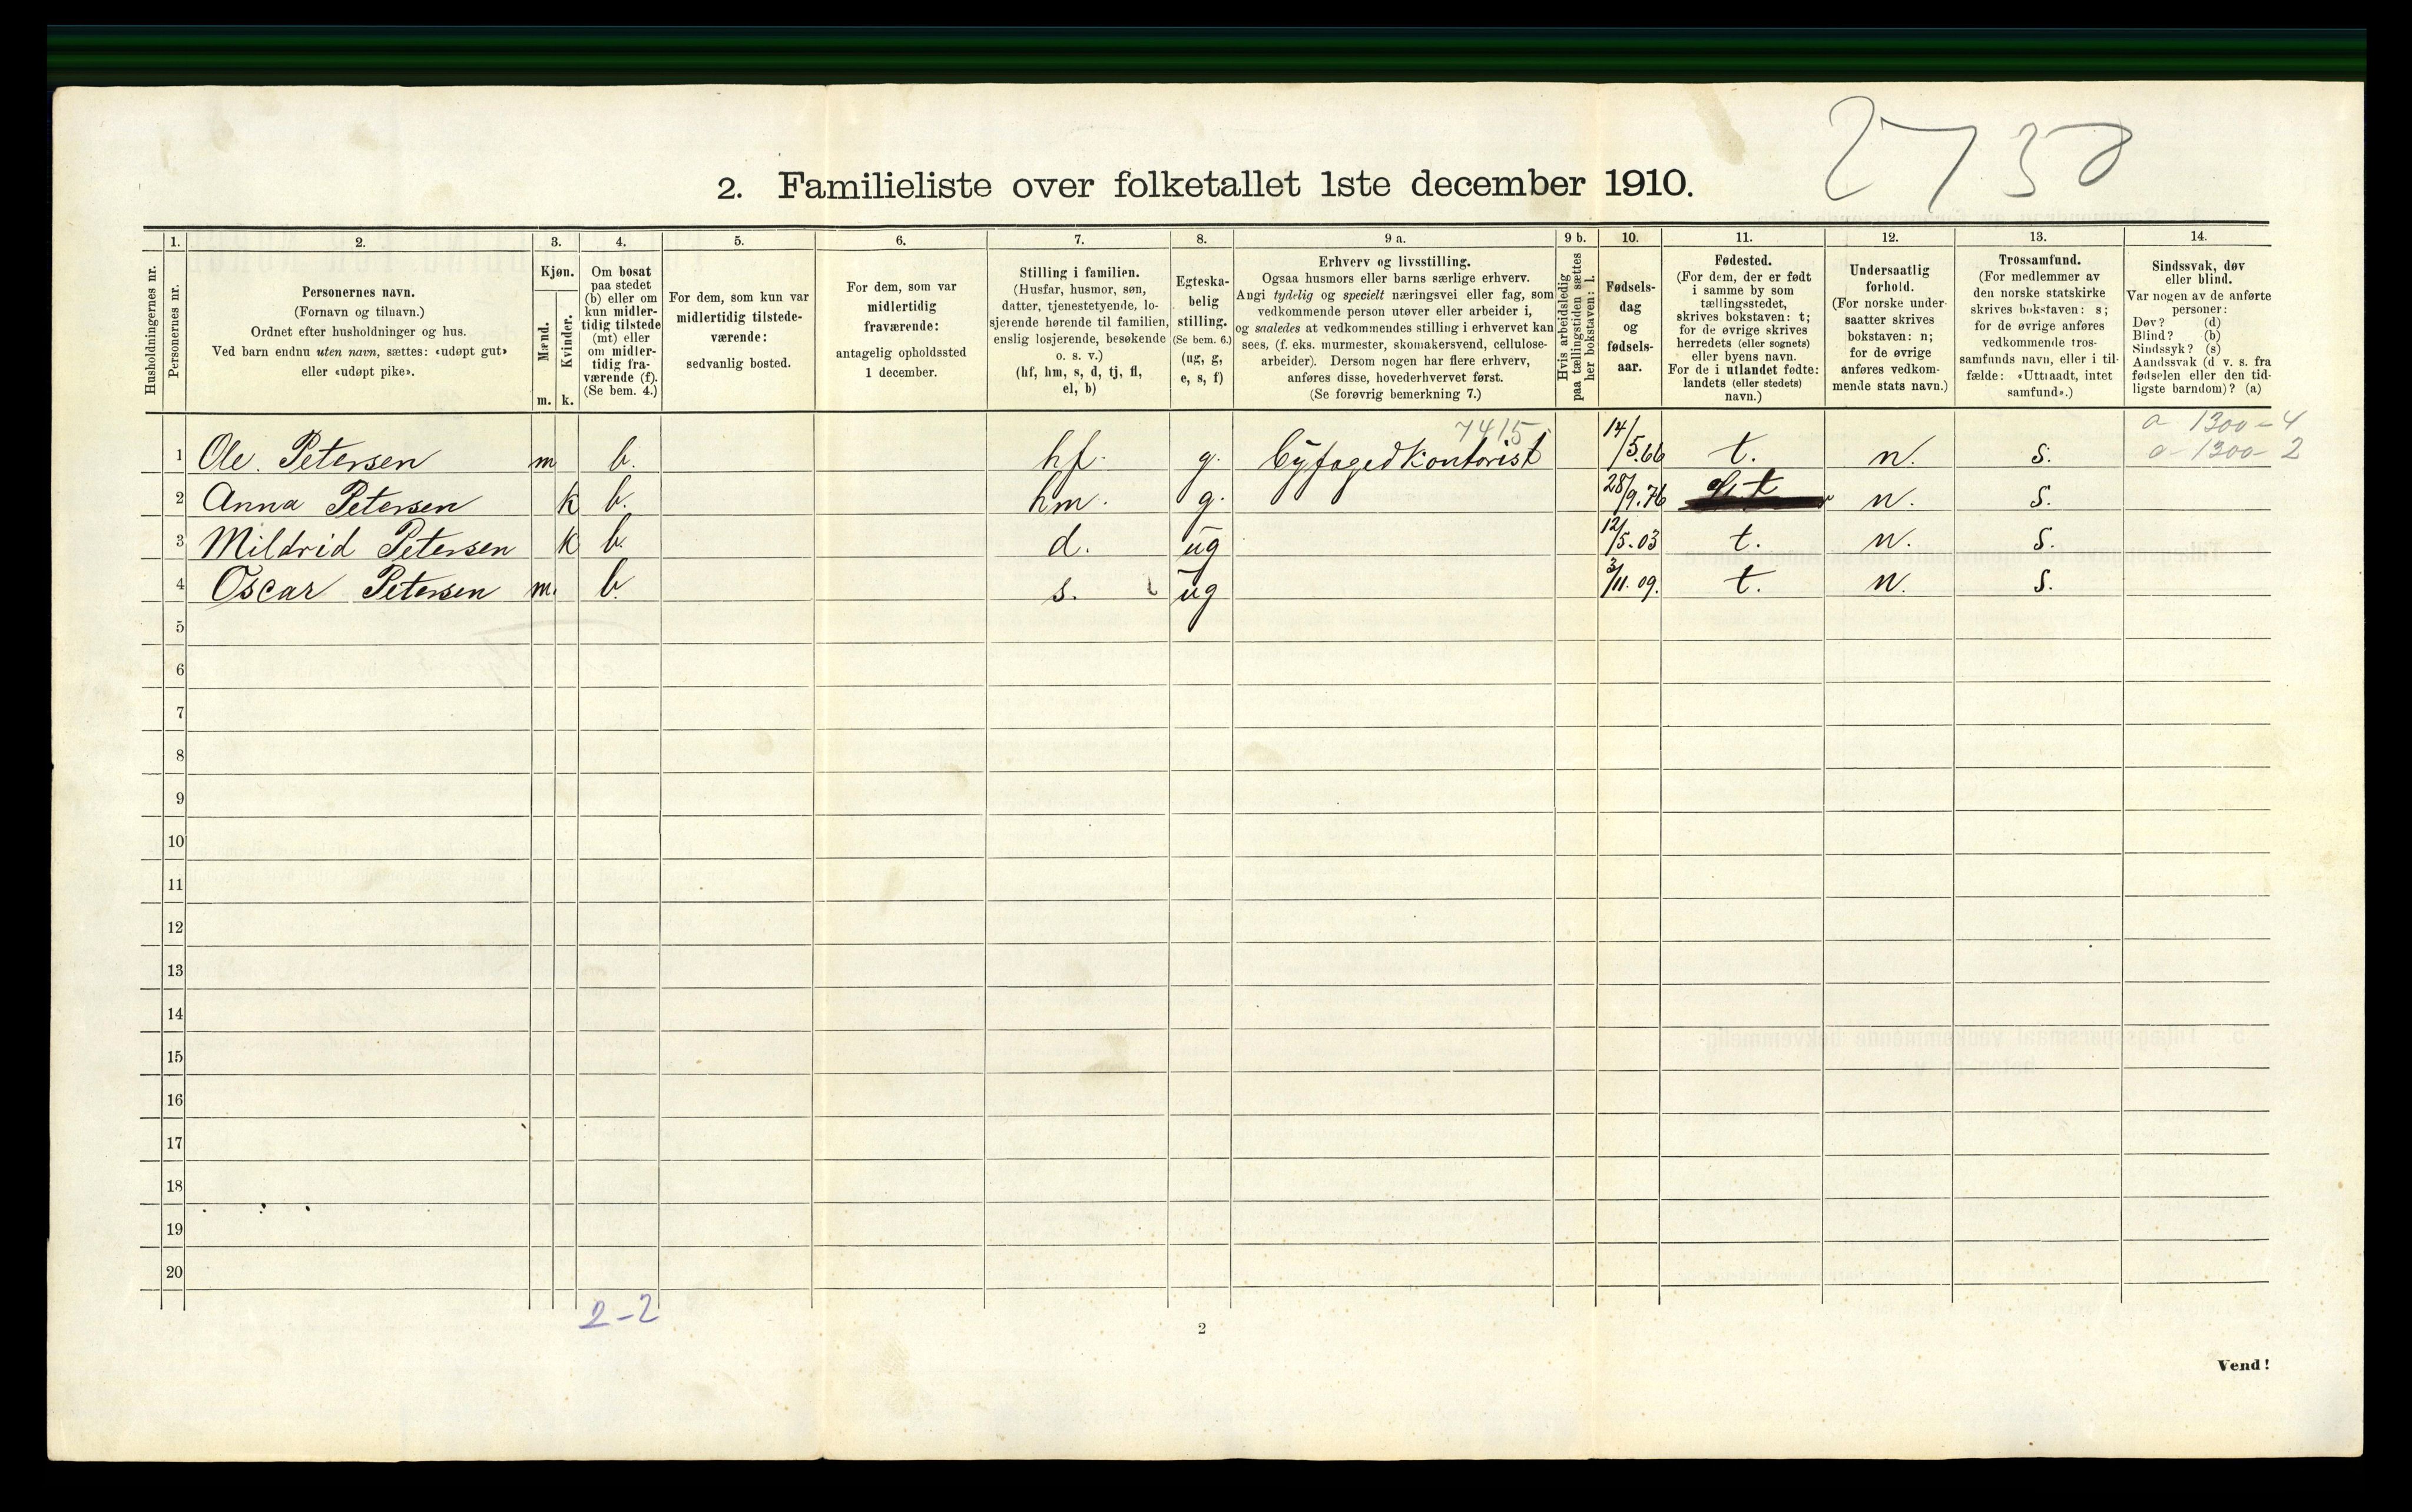 2738
2. Familieliste over folketallet 1ste december 1910.
1. 2. 3. 4. 5. 6. 7. 8. 9 a. 9 b. 10. 11. 12. 13. 14.
Husholdningernes nr.
Personernes nr.
Personernes navn.
(Fornavn og tilnavn.)
Ordnet efter husholdninger og hus.
Ved barn endnu uten navn, sættes: «udøpt gut»
eller «udøpt pike».
Kjøn.
Mænd.
Kvinder.
m. k.
Om bosat
paa stedet
(b) eller om
kun midler-
tidig tilstede
(mt) eller
om midler-
tidig fra-
værende (f).
(Se bem. 4.)
For dem, som kun var
midlertidig tilstede-
værende:
sedvanlig bosted.
For dem, som var
midlertidig
fraværende:
antagelig opholdssted
1 december.
Stilling i familien.
(Husfar, husmor, søn,
datter, tjenestetyende, lo-
sjerende hørende til familien,
enslig losjerende, besøkende
o. s. v.)
(hf, hm, s, d, tj, fl,
el, b)
Egteska-
belig
stilling.
(Se bem. 6.)
(ug, g,
e, s, f)
Erhverv og livsstilling.
Ogsaa husmors eller barns særlige erhverv.
Angi tydelig og specielt næringsvei eller fag, som
vedkommende person utøver eller arbeider i,
og saaledes at vedkommendes stilling i erhvervet kan
sees, (f. eks. murmester, skomakersvend, cellulose-
arbeider). Dersom nogen har flere erhverv,
anføres disse, hovederhvervet først.
(Se forøvrig bemerkning 7.)
Hvis arbeidsledig
paa tællingstiden sættes
her bokstaven: l.
Fødsels-
dag
og
fødsels-
aar.
Fødested.
(For dem, der er født
i samme by som
tællingsstedet,
skrives bokstaven: t;
for de øvrige skrives
herredets (eller sognets)
eller byens navn.
For de i utlandet fødte:
landets (eller stedets)
navn.)
Undersaatlig
forhold.
(For norske under-
saatter skrives
bokstaven: n;
for de øvrige
anføres vedkom-
mende stats navn.)
Trossamfund.
(For medlemmer av
den norske statskirke
skrives bokstaven: s;
for de øvrige anføres
vedkommende tros-
samfunds navn, eller i til-
fælde: «Uttraadt, intet
samfund».)
Sindssvak, døv
eller blind.
Var nogen av de anførte
personer:
Døv? (d)
Blind? (b)
Sindssyk? (s)
Aandssvak (d v. s. fra
fødselen eller den tid-
ligste barndom)? (a)
7415 a 1300-4
1 Ole. Petersen m b. hf. g. Byfogedkontorist 14/5.66 t. n. s. a-1300-2
2 Anna Petersen k b. hm. g. 28/9.76 t n. s.
3 Mildrid Petersen k b. d. ug 12/5.03 t. n. s.
4 Oscar Petersen m. b. s. ug 3/11.09. t. n. s.
5
6
7
8
9
10
11
12
13
14
15
16
17
18
19
20
2-2
2
Vend!